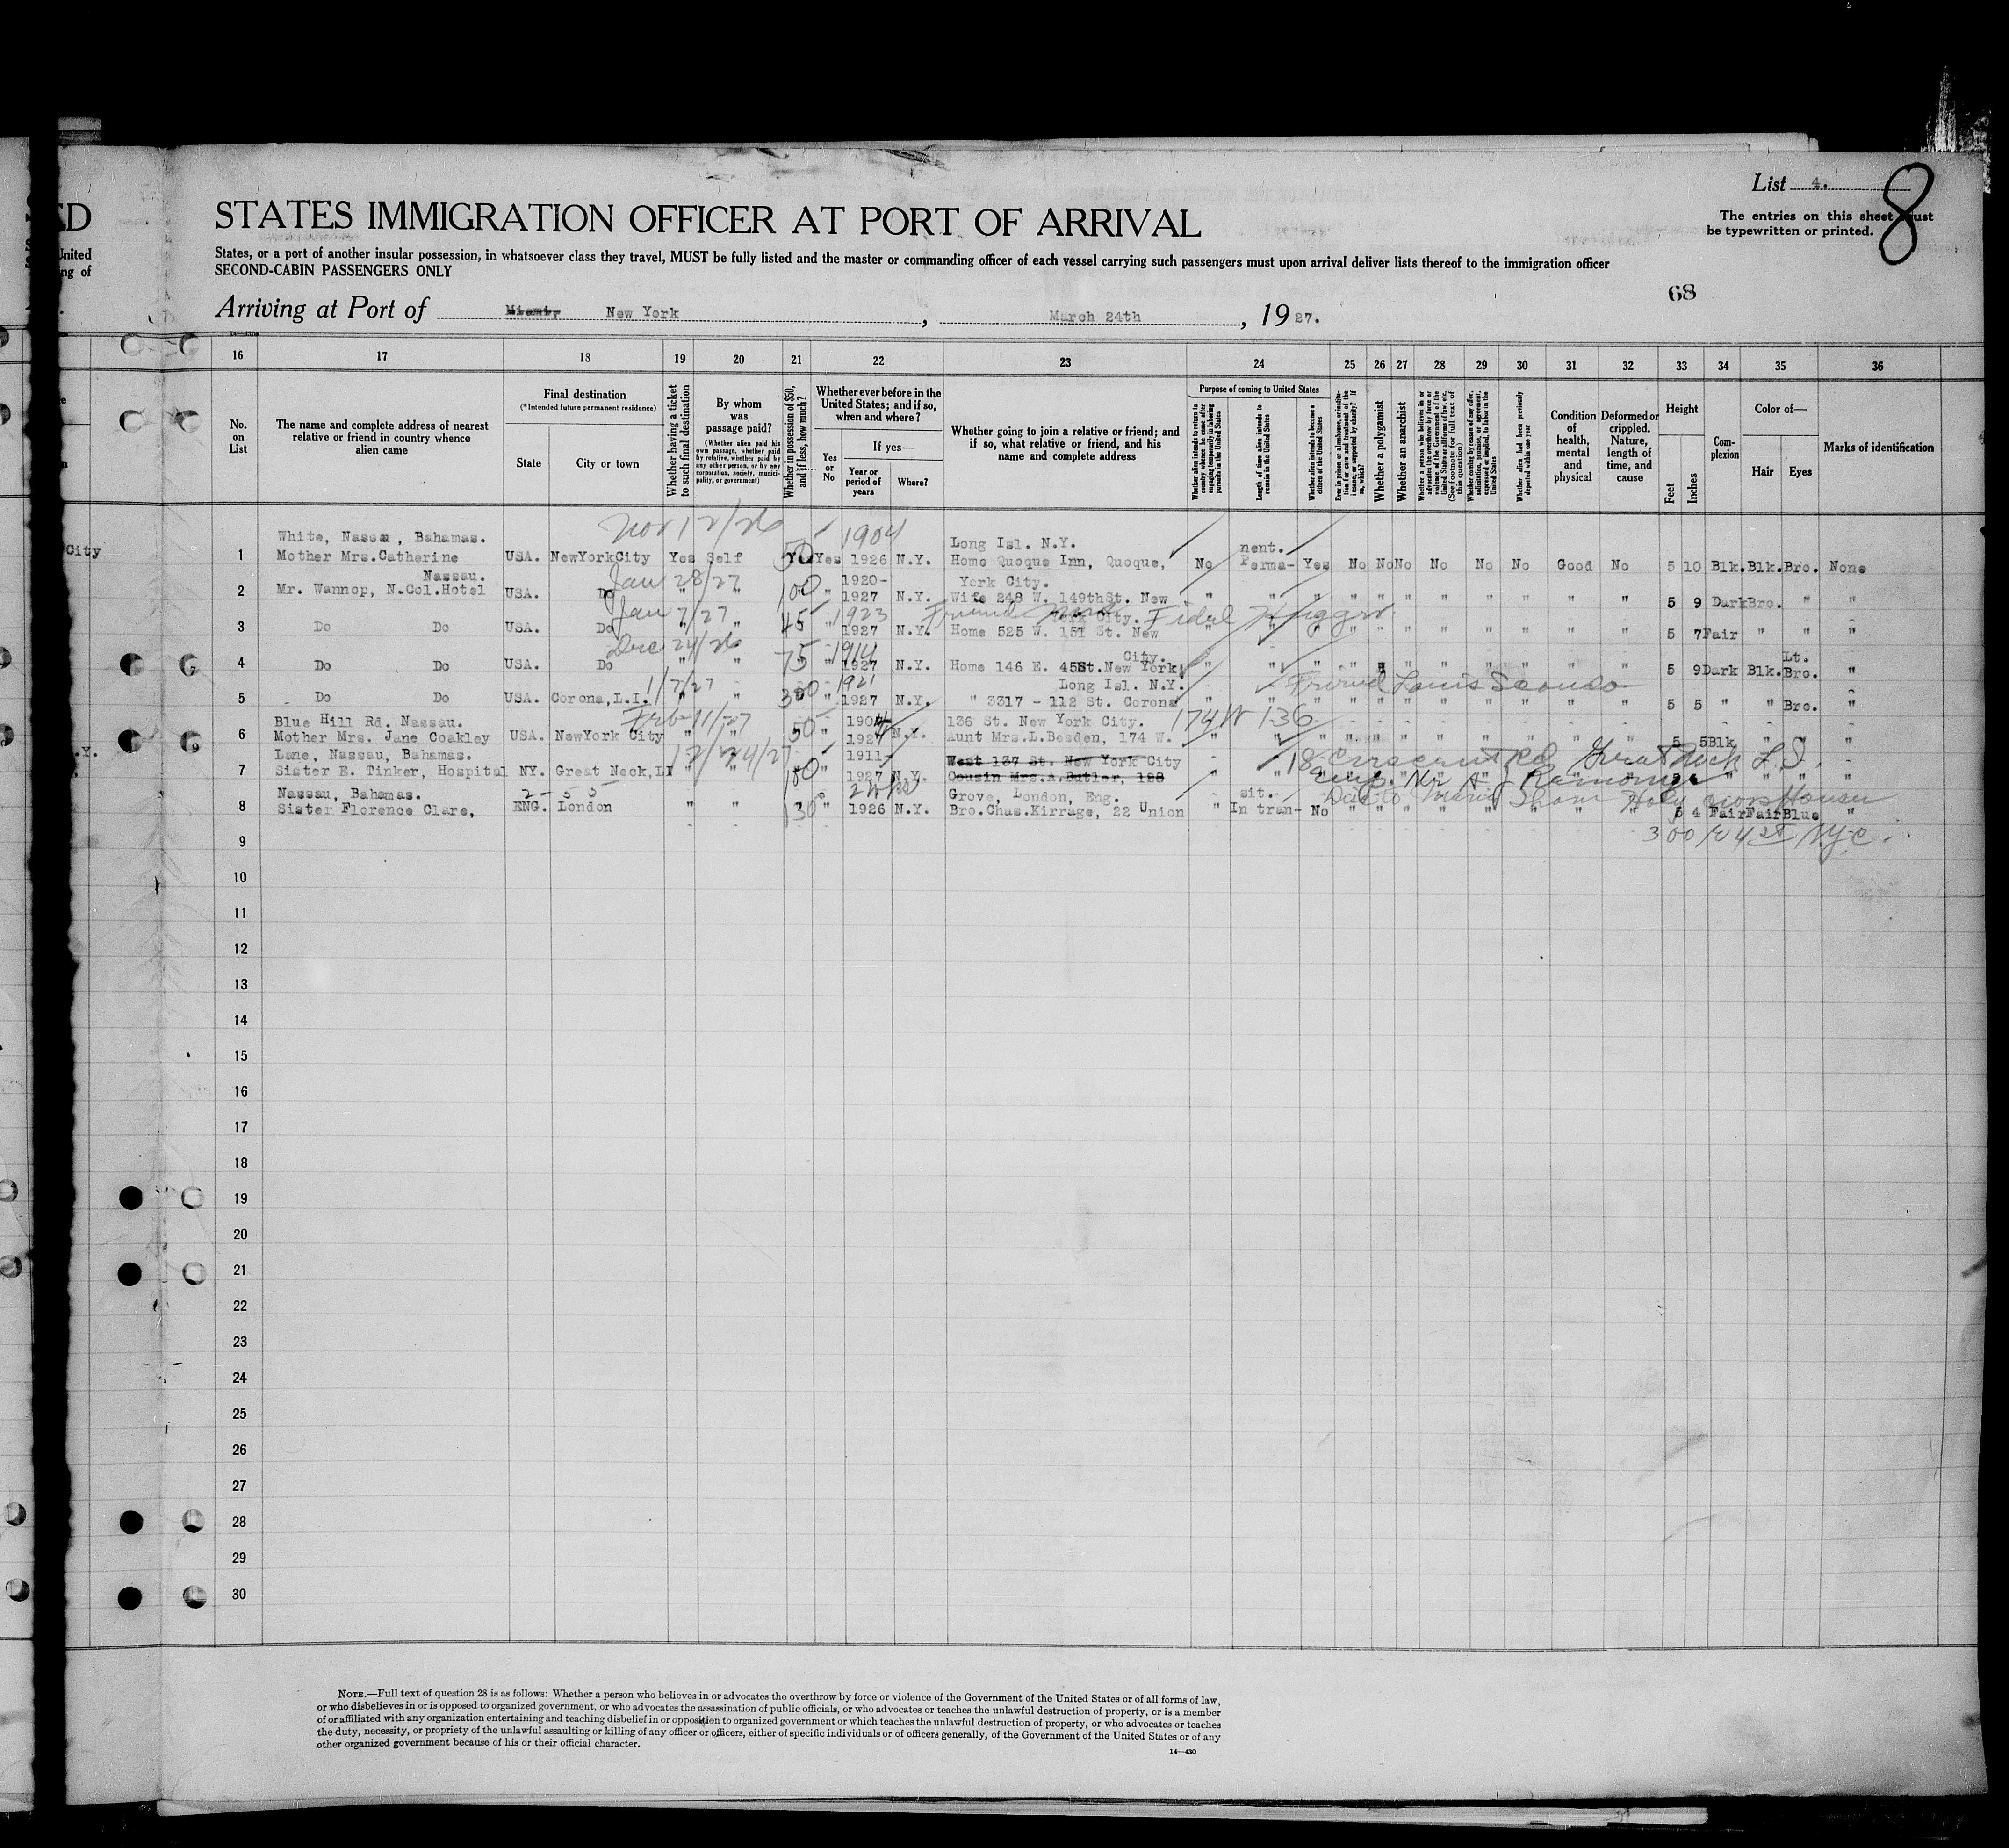 List 4.
8
STATES IMMIGRATION OFFICER AT PORT OF ARRIVAL
The entries on this sheet must
be typewritten or printed.
States, or a port of another insular possession, in whatsoever class they travel, MUST be fully listed and the master or commanding officer of each vessel carrying such passengers must upon arrival deliver lists thereof to the immigration officer
SECOND-CABIN PASSENGERS ONLY
68
Arriving at Port of New York, March 24th, 1927.
16 17 18 19 20 21 22 23 24 25 26 27 28 29 30 31 32 33 34 35 36
No. on List
The name and complete address of nearest relative or friend in country whence alien came
Final destination
(*Intended future permanent residence)
State
City or town
Whether having a ticket to such final destination
By whom was passage paid?
(Whether alien paid his own passage, whether paid by relative, whether paid by any other person, or by any corporation, society, municipality, or government)
Whether in possession of $50, and if less, how much?
Whether ever before in the United States; and if so, when and where?
Yes or No
If yes—
Year or period of years
Where?
Whether going to join a relative or friend; and if so, what relative or friend, and his name and complete address
Purpose of coming to United States
Whether alien intends to return to country whence he came after engaging temporarily in laboring pursuits in the United States
Length of time alien intends to remain in the United States
Whether alien intends to become a citizen of the United States
Ever in prison or almshouse, or institution for care and treatment of the insane, or supported by charity? If so, which?
Whether a polygamist
Whether an anarchist
Whether a person who believes in or advocates the overthrow by force or violence of the Government of the United States or all forms of law, etc. (See footnote for full text of this question)
Whether coming by reason of any offer, solicitation, promise, or agreement, expressed or implied, to labor in the United States
Whether alien had been previously deported within one year
Condition of health, mental and physical
Deformed or crippled. Nature, length of time, and cause
Height
Feet
Inches
Complexion
Color of—
Hair
Eyes
Marks of identification
Nov 12/26 1904
White, Nassau, Bahamas. Long Isl. N.Y. nent.
1 Mother Mrs.Catherine USA. NewYorkCity Yes Self 50 Yes 1926 N.Y. Home Quoque Inn, Quoque, No Perma- Yes No No No No No No Good No 5 10 Blk. Blk. Bro. None
Nassau. Jan 28/27 1920- York City.
2 Mr. Wannop, N.Col.Hotel USA. Do " " 100 " 1927 N.Y. Wife 248 W. 149thSt. New " " " " " " " " " " " 5 9 Dark Bro. " "
Jan 7/27 1923 York City. Friend Fidel
3 Do Do USA. Do " " 45 " 1927 N.Y. Home 525 W. 151 St. New " " " " " " " " " " " 5 7 Fair " " "
Dec 24/26 1914 City. Lt.
4 Do Do USA. Do " " 75 " 1927 N.Y. Home 146 E. 45St.New York " " " " " " " " " " " 5 9 Dark Blk. Bro. "
1/7/27 1921 Long Isl. N.Y. Friend Louis
5 Do Do USA. Corona,L.I. " " 300 " 1927 N.Y. " 3317 - 112 St. Corona " " " " " " " " " " " 5 5 " " Bro. "
Blue Hill Rd. Nassau. Feb 11/27 1904 136 St. New York City. 174 W 136
6 Mother Mrs. Jane Coakley USA. NewYork City " " 50 " 1927 N.Y. Aunt Mrs.L.Besden, 174 W. " " " " " " " " " " " 5 5 Blk " " "
Lane, Nassau, Bahamas. 1911 West 137 St. New York City 18 Crescent Rd Great Neck L.I.
7 Sister E. Tinker, Hospital NY. Great Neck,LI " " 100 " 1927 N.Y. Cousin Mrs.A.Butler, 128 " " " " " " " "
Nassau, Bahamas. 2-55 2 wks Grove, London, Eng. sit. Holy Cross House
8 Sister Florence Clare, ENG. London " " 130 " 1926 N.Y. Bro.Chas.Kirrage, 22 Union " In tran- No " " " " " " " " 5 4 Fair Fair Blue "
300 E 4 St N.Y.C.
9
10
11
12
13
14
15
16
17
18
19
20
21
22
23
24
25
26
27
28
29
30
NOTE.—Full text of question 28 is as follows: Whether a person who believes in or advocates the overthrow by force or violence of the Government of the United States or of all forms of law,
or who disbelieves in or is opposed to organized government, or who advocates the assassination of public officials, or who advocates or teaches the unlawful destruction of property, or is a member
of or affiliated with any organization entertaining and teaching disbelief in or opposition to organized government or which teaches the unlawful destruction of property, or who advocates or teaches
the duty, necessity, or propriety of the unlawful assaulting or killing of any officer or officers, either of specific individuals or of officers generally, of the Government of the United States or of any
other organized government because of his or their official character.
14—430